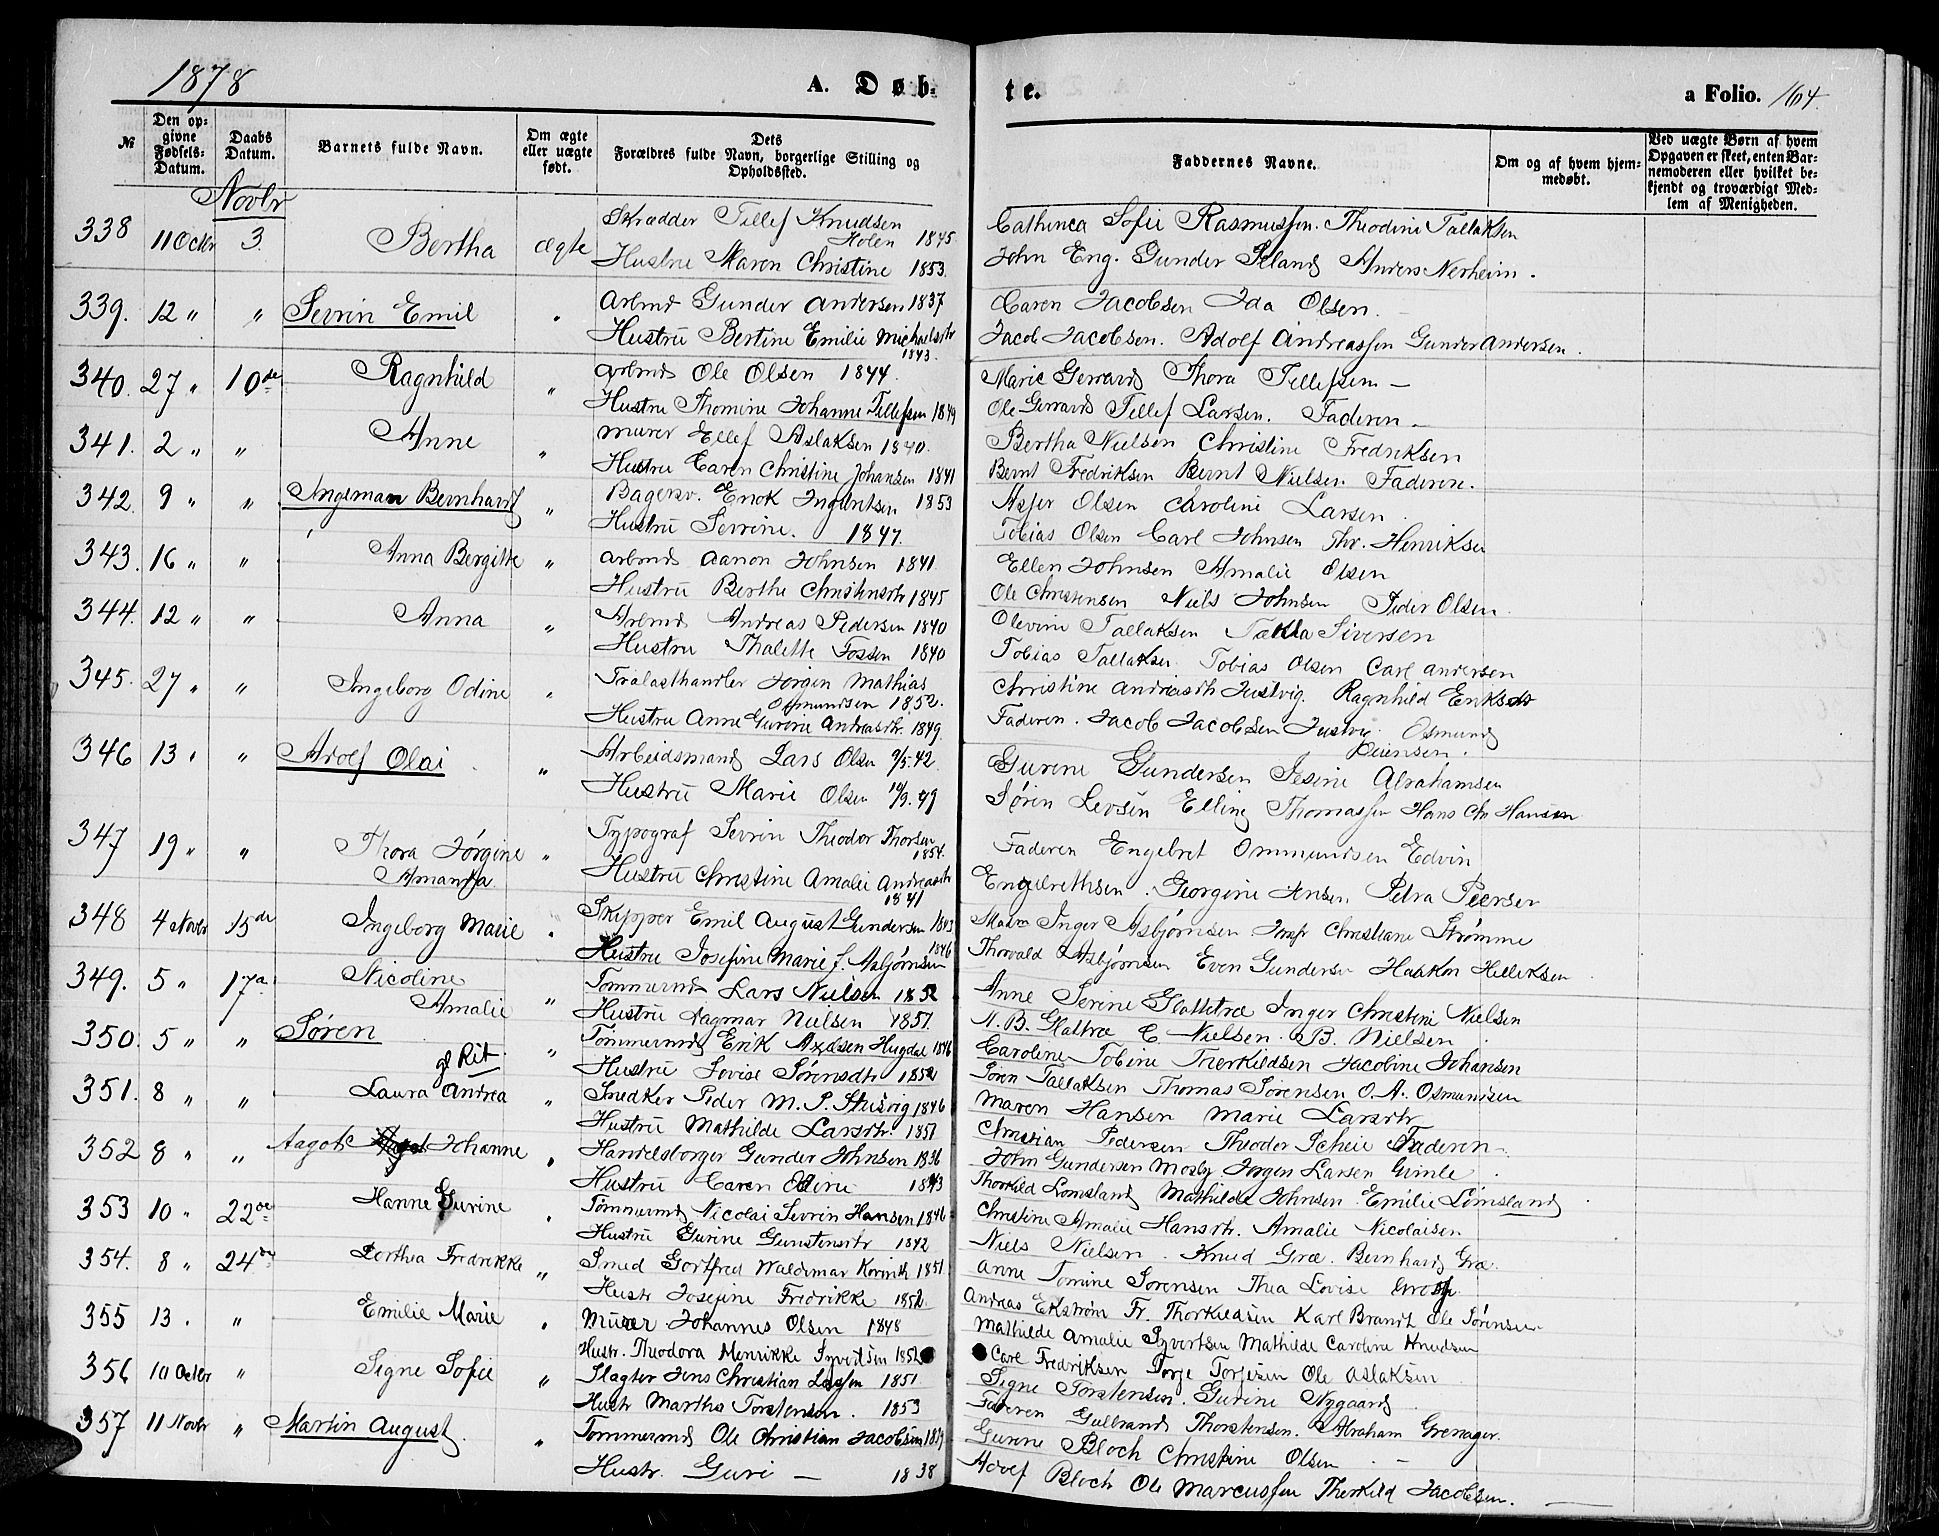 1878
A. Døb-
te.
a Folio. 164
№
Den opgivne Fødsels-Datum.
Daabs Datum.
Barnets fulde Navn.
Om ægte eller uægte født.
Dets Forældres fulde Navn, borgerlige Stilling og Opholdssted.
Faddernes Navne.
Om og af hvem hjemmedøbt.
Ved uægte Børn af hvem Opgaven er skeet, enten Barnemoderen eller hvilket bekjendt og troværdigt Medlem af Menigheden.
Novbr
338 11 Octbr 3. Bertha ægte Skrædder Tellef Knudsen Holen 1845 Cathinca Sofie Rasmussen. Theodine Tallaksen
Hustru Maren Christine 1853. John Eng. Gunder Anders Nerheim.
339. 12 " " Sevrin Emil " Arbmd Gunder Andersen 1837 Caren Jacobsen Ida Olsen.
Hustru Bertine Emilie Michaelsdtr 1843. Jacob Jacobsen. Adolf Andreassen Gunder Andersen.
340. 27 " 10de Ragnhild " Arbmd Ole Olsen 1844. Marie Gerrard Thora Tellefsen —
Hustru Thomine Johanne Tellefsen 1849 Ole Gerrard Tellef Larsen. Faderen —
341. 2 " " Anne " Murer Ellef Aslaksen 1840. Bertha Nielsen Christine Fredriksen
Hustru Caren Christine Johansen 1841 Bernt Fredriksen Bernt Nielsen Faderen.
342. 9 " " Ingeman Bernhard " Bagersv. Enok Ingbrtsen 1853 Olsen Caroline Larsen
Hustru Serine. 1847. Tobias Olsen Carl Johnsen Thr. Henriksen
343. 16 " " Anna Bergitte " Arbmd Aanon Johnsen 1841. Ellen Johnsen Amalie Olsen
Hustru Berthe Christensdtr 1845 Ole Christensen Niels Johnsen Peder Olsen.
344. 12 " " Anna " Arbmd Andreas Pedersen 1840 Olevine Tallaksen Takla Siversen
Hustru Thalette Fossen 1840 Tobias Tallaksen Tobias Olsen Carl Andersen
345. 27 " " Ingeborg Odine " Trælasthandler Jørgen Mathias Osmundsen 1852. Christine Andreasdtr Justvig. Ragnhild Eriksdtr
Hustru Anne Gurine Andreasdtr. 1849. Faderen. Jacob Jacobsen Justvig Osmund
346 13 " " Adolf Olai " Arbeidsmand Lars Olsen 9/5.42. Gurine Gundersen Jesine Abrahamsen
Hustru Marie Olsen 10/9.49 Søren Levsen Elling Thomassen Hans Chr Hansen
347 19 " " Thora Jørgine Amanda " Typograf Sevrin Theodor Thorsen 1854. Faderen Engebret Ommundsen Edvin
Hustru Christine Amalie Andreasdtr 1841 Engebrethsen. Georgine Jensen Petra Peersen
348 4 Novbr 15de Ingeborg Marie " Skipper Emil August Gundersen 1843 Mad. Inger Asbjørnsen Jomfr Christiane Strømme
Hustru Josefine Marie f. Asbjørnsen 1846 Thorvald Asbjørnsen Even Gundersen Haakon Helleksen
349. 5 " 17de Nicoline Amalie " Tømmermd Lars Nielsen 1852 Anne Serine Glattetræ Inger Christine Nielsen
Hustru Dagmar Nielsen 1851. N. B. Glattræ C Nielsen. B. Nielsen
350. 5 " " Søren " Tømmermd Erik Axelsen Hugdal 1846 Caroline Tobine Therkildsen Jacobine Johansen
Hustru Lovise Sørensdtr 1852 Søren Tallaksen Thomas Sørensen O. A. Osmundsen
351. 8 " " Laura Andrea " Snedker Peder M. P. Stusvig 1846 Maren Hansen Marie Larsdtr
Hustru Mathilde Larsdtr. 1851 Christian Pedersen Theodor Scheie Faderen.
352 8 " " Aagot Johanne " Handelsborger Gunder Johnsen 1836 John Gundersen Mosby Jørgen Larsen Gimle
Hustru Caren Oline 1843 Thorkild Lømsland Mathilde Johnsen Emilie Lømsland
353 10 " 22de Hanne Gurine " Tømmermd Nicolai Sevrin Hansen 1846 Christine Amalie Hansdtr. Amalie Nicolaisen
Hustru Gurine Gunstensdtr 1842 Niels Nielsen. Knud Græ. Bernhard Græ.
354. 8 " 24de Dorthea Fredrikke " Smed Gotfred Waldemar Korinth 1851 Anne Tomine Sørensen Thea Lovise
Hustr Josefine Fredrikke 1852. Andreas Ekstrøm Fr. Thorkildsen Karl Brandt Ole Sørensen
355 13. " Emilie Marie " Murer Johannes Olsen 1848 Mathilde Amalie Syvertsen Mathilde Caroline Knudsen
Hustr. Theodora Henrikke Syvertsen 1852 Carl Fredriksen Torje Torjesen Ole Aslaksen
356 10 Octbr " Signe Sofie " Slagter Jens Christian Larsen 1851. Signe Torstensen. Gurine Nygaard
Hustr Martha Torstensen. 1853 Faderen Gulbrand Thorstensen. Abraham Grenager.
357 11 Novbr " Martin August " Tømmermd Ole Christian Jacobsen 1839 Gurine Bloch Christine Olsen
Hustr. Guri — 1838 Adolf Bloch Ole Marcussen Therkild Jacobsen.